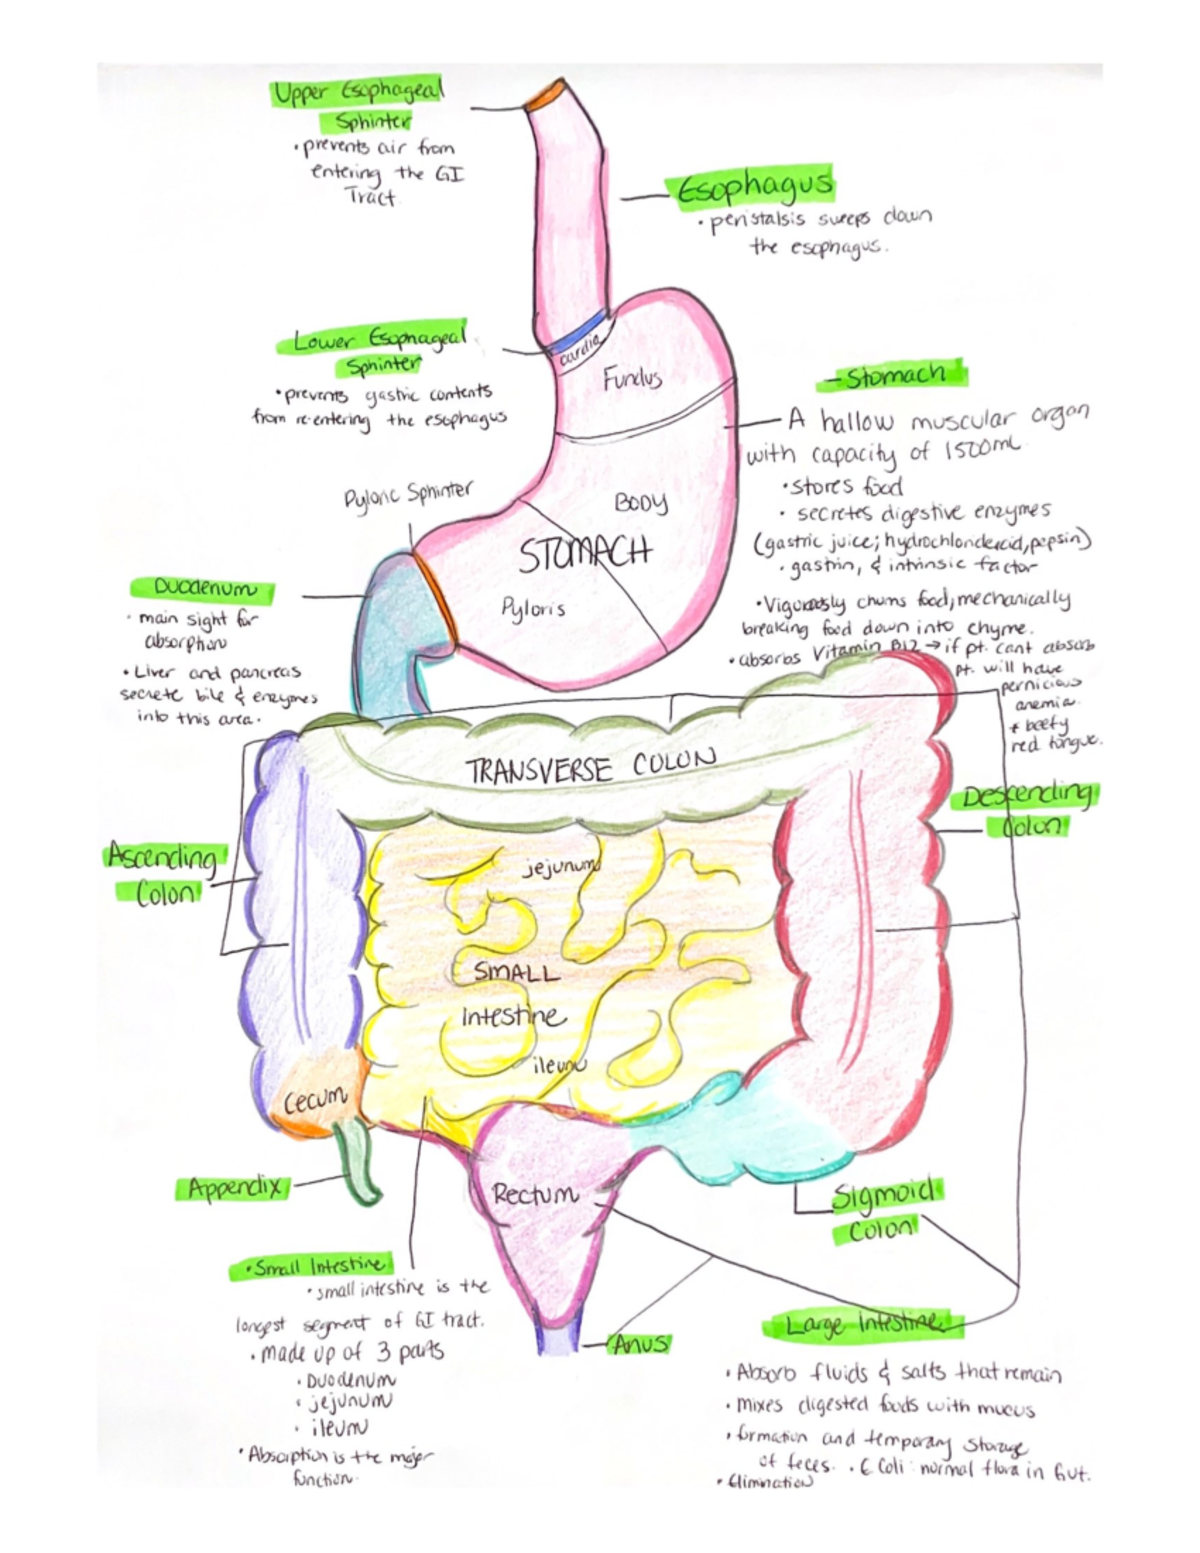 Upper Esophageal
Sphinter
• prevents air from
entering the GI
Tract
Esophagus
• peristalsis sweeps down
the esophagus.
Lower Esophageal
Sphinter
• prevents gastric contents
from re-entering the esophagus
cardia
Fundus
- Stomach
A hallow muscular organ
with capacity of 1500mL
• stores food
• secretes digestive enzymes
(gastric juice; hydrochlorideacid, pepsin)
• gastrin, & intrinsic factor
• Vigorously churns food, mechanically
breaking food down into chyme.
• absorbs Vitamin B12 → if pt. cant absorb
pt. will have
pernicious
anemia.
+ beefy
red tongue.
Pyloric Sphinter
BODY
STOMACH
Pyloris
Duodenum
• main sight for
absorption
• Liver and pancreas
secrete bile & enzymes
into this area.
TRANSVERSE COLON
Descending
Colon
Ascending
Colon
jejunum
SMALL
Intestine
ileum
Cecum
Appendix
Rectum
Sigmoid
Colon
Anus
• Small Intestine
• small intestine is the
longest segment of GI tract.
• made up of 3 parts
• Duodenum
• jejunum
• ileum
• Absorption is the major
function.
Large Intestine
• Absorb fluids & salts that remain
• mixes digested foods with mucus
• formation and temporary storage
of feces. • E Coli: normal flora in Gut.
• Elimination